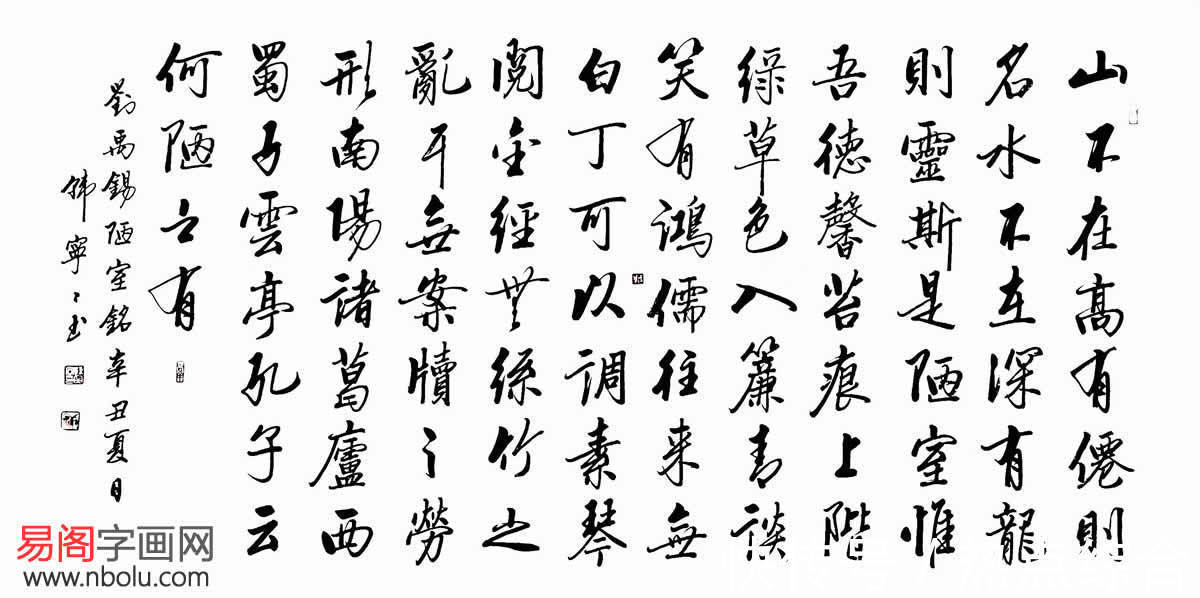 山不在髙有僊則
名水不在深有龍
則靈斯是陋室惟
吾德馨苔痕上階
綠草色入簾青談
笑有鴻儒往来無
白丁可以調素琴
閱金經無絲竹之
亂耳無案牘之勞
形南陽諸葛廬西
蜀子雲亭孔子云
何陋之有
劉禹錫陋室銘辛丑夏日
韩寧〻书
易阁字画网
www.nbolu.com